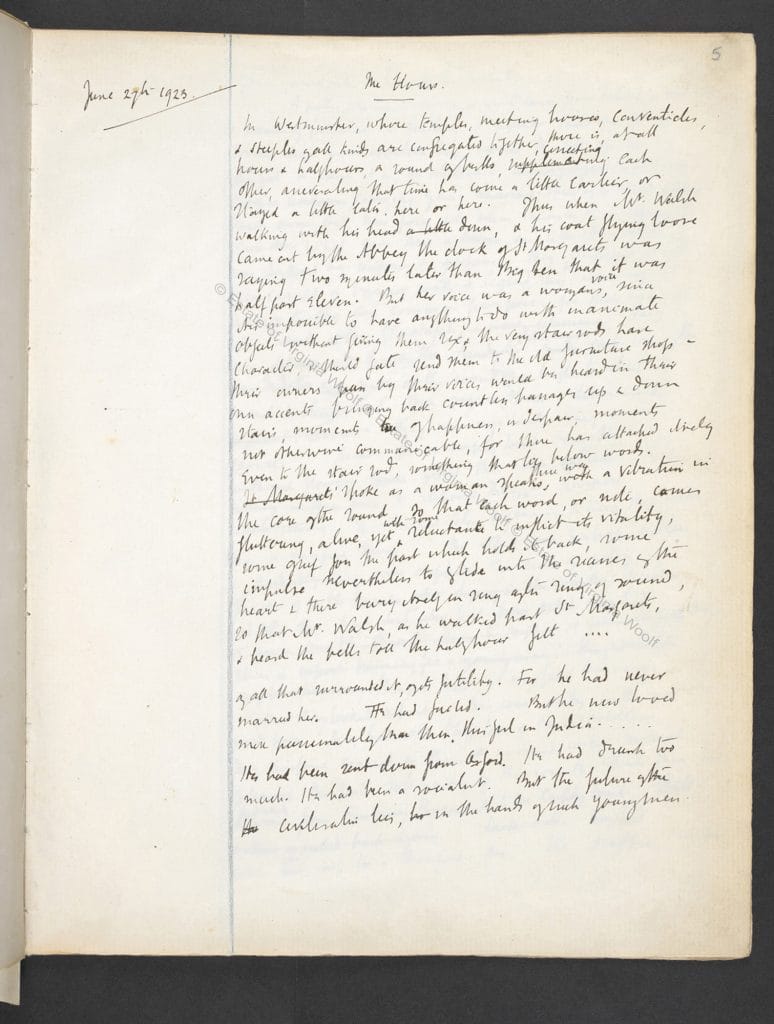 5
June 27th 1923.
The Hours.
In Westminster, where temples, meeting houses, conventicles,
& steeples of all kinds are congregated together, there is, at all
hours & halfhours, a round of bells, correcting
supplementing each
other, asseverating that time has come a little earlier, or
stayed a little later, here or here. Thus when Mr. Walsh
walking with his head a little down, & his coat flying loose
came out by the Abbey the clock of St Margarets was
saying two minutes later than Big Ben that it was
half past Eleven. But her voice was a womans, voice since
it is impossible to have anything to do with inanimate
objects without giving them sex & the very stair rods have
character, & should fate send them to the old furniture shop –
their owners by their voices would be heard in their
own accents bringing back countless passages up & down
stairs, moments of happiness, or despair, moments
not otherwise communicable, for there has attached itself
Even to the stair rod, something that lies below words.
St Margarets spoke as a woman speaks, with a vibration in
the core of the sound so that each word, or note, comes
fluttering, alive, yet with some reluctance to inflict its vitality,
some grief for the past which holds it back, some
impulse nevertheless to glide into the recesses of the
heart & there bury itself in ring after ring of sound,
so that Mr. Walsh, as he walked past St Margarets,
& heard the bells toll the halfhour felt ....
of all that surrounded it, of its futility. For he had never
married her. He had failed. But he now loved
more passionately than then, this girl in India.....
He had been sent down from Oxford. He had drunk too
much. He had been a socialist. But the future of the
civilisation lies, in the hands of such young men.
© Estate of Virginia Woolf © Estate of Virginia Woolf © Estate of Virginia Woolf